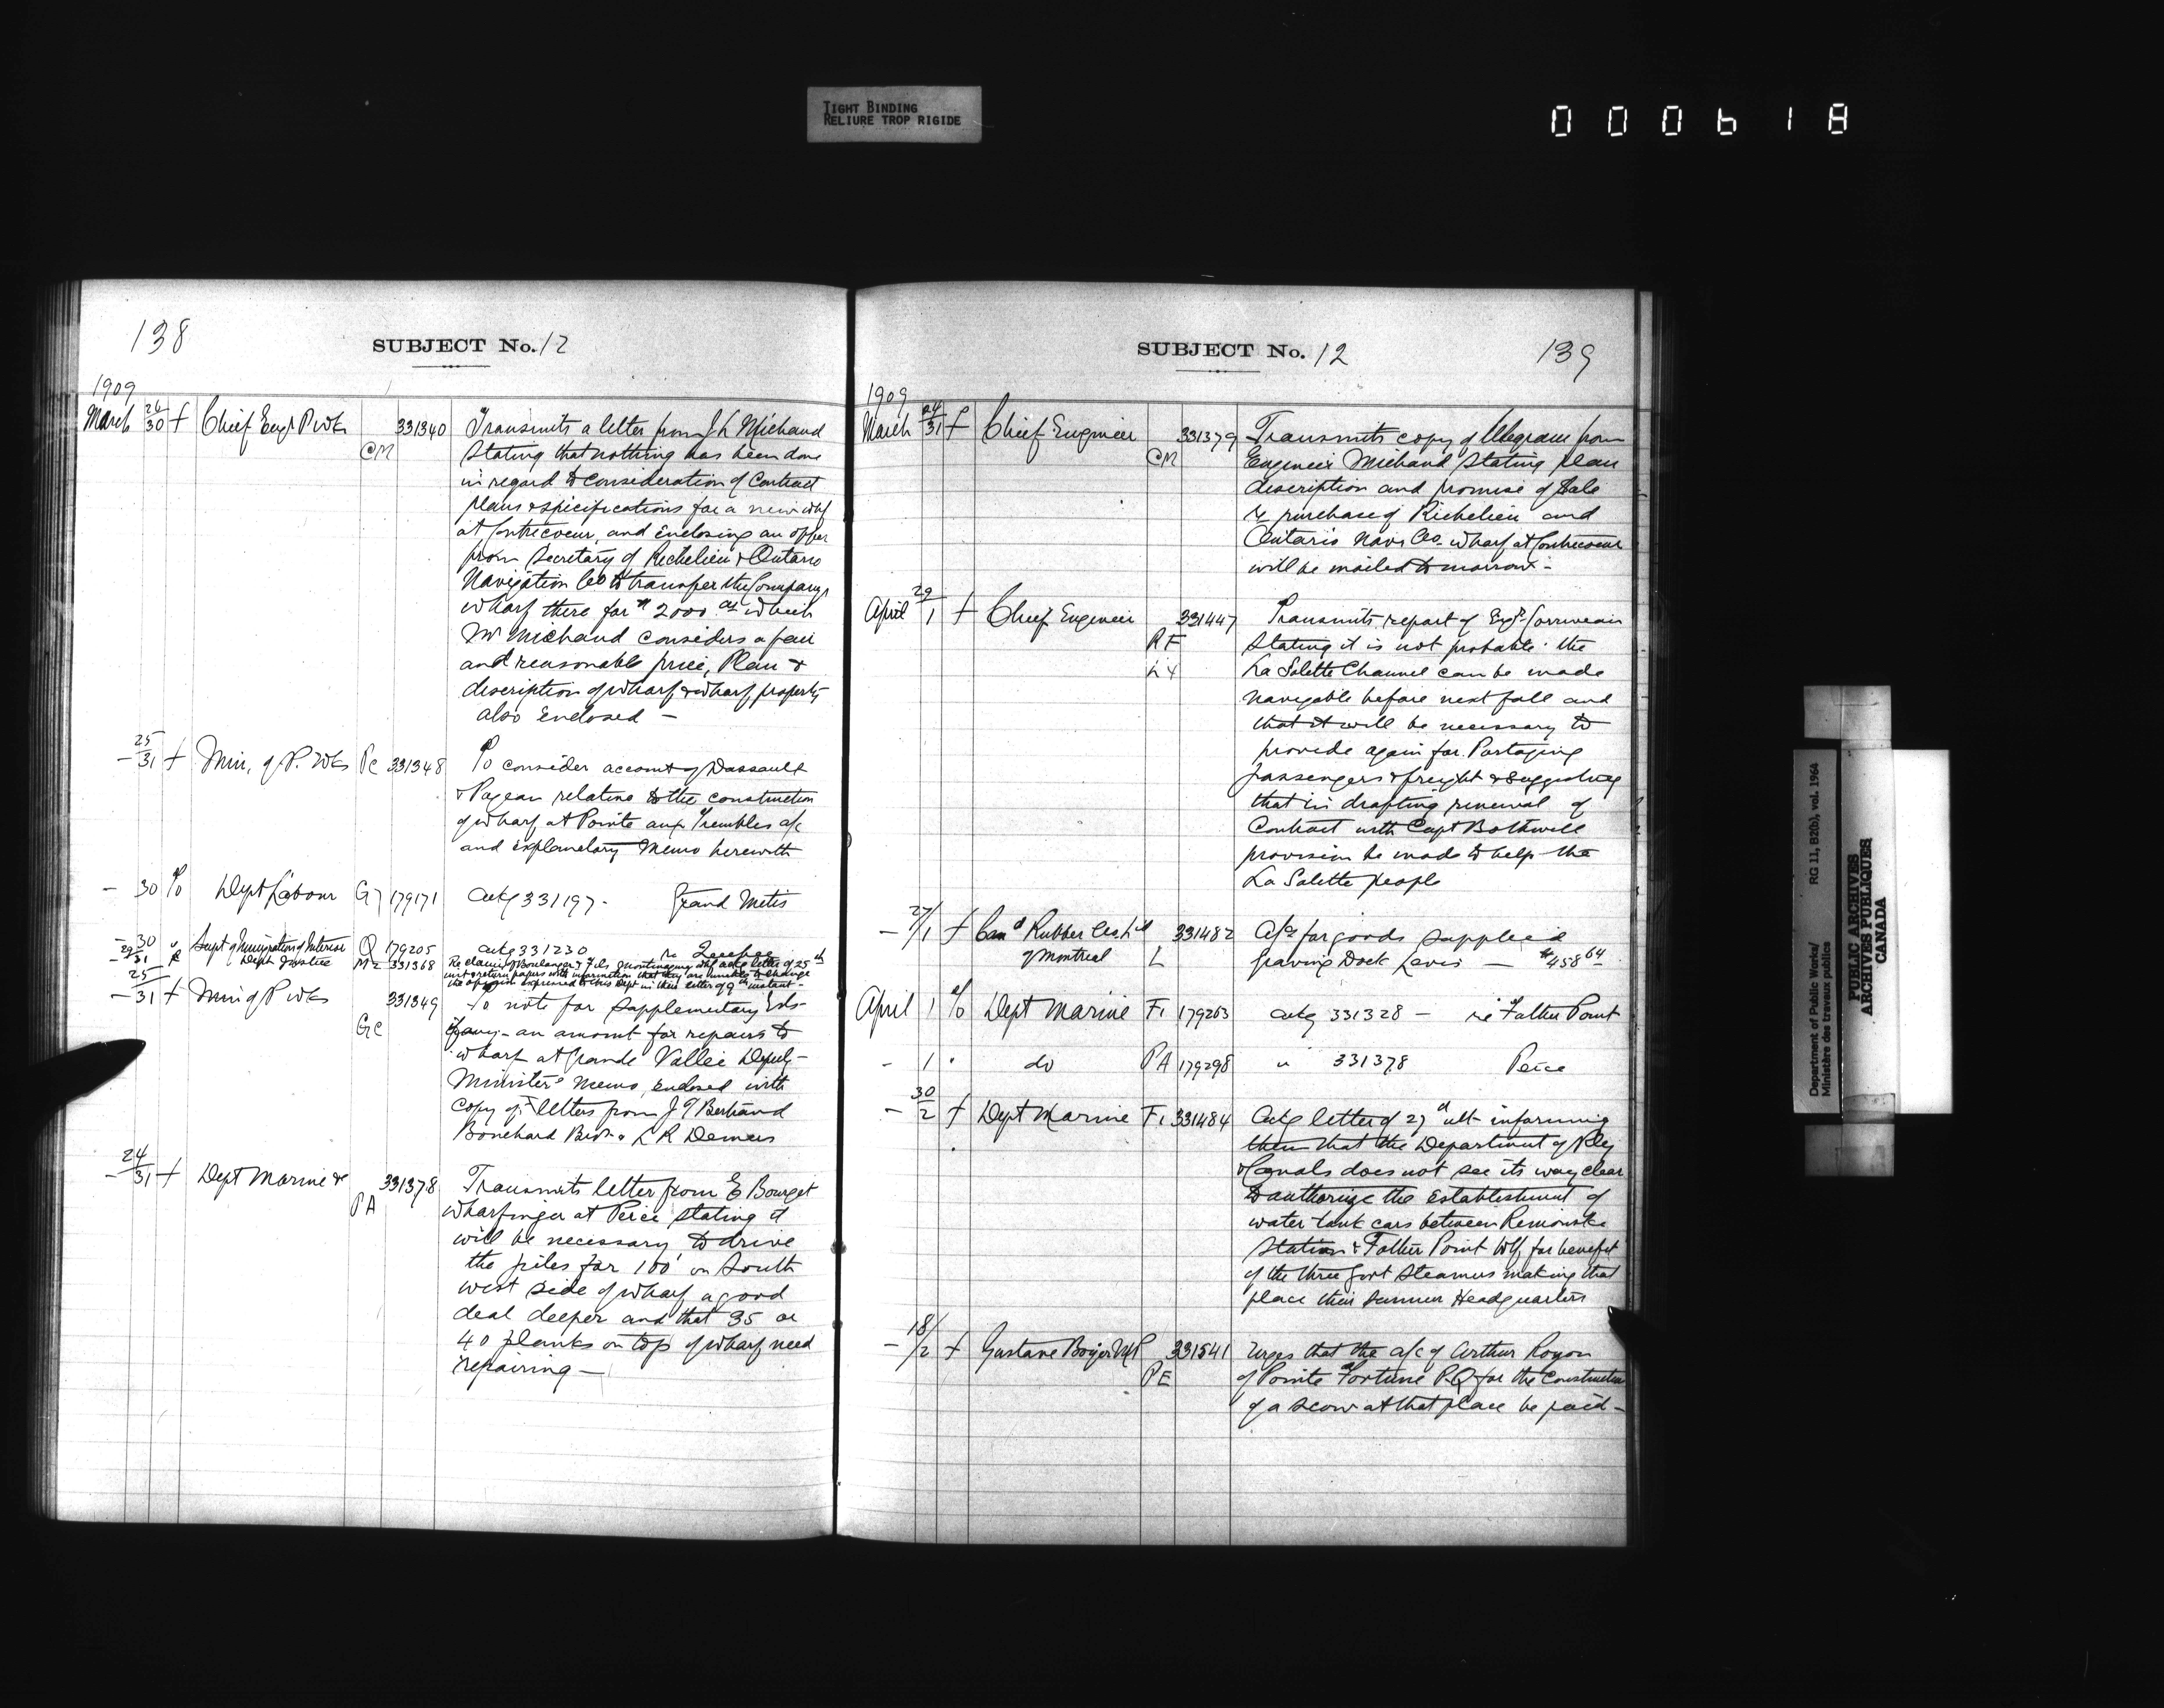 TIGHT BINDING
RELIURE TROP RIGIDE
000618
138
SUBJECT No. 12
1909
March 26/30 f Chief Engr P Wks 331340 Transmits a letter from J L Michaud
CM stating that nothing has been done
in regard to consideration of contract
plans & specifications for a new whf
at Contrecoeur, and enclosing an offer
from Secretary of Richelieu & Ontario
Navigation Co to transfer the Companys
wharf there for $2000. as which
Mr Michaud considers a fair
and reasonable price, Plan &
description of wharf & wharf property
also enclosed -
- 25/31 f Min. of P. Wks PC 331348 To consider account of Dassault
& Pageau relative to the construction
of wharf at Pointe aux Trembles a/c
and explanatory memo herewith
- 30 To Dept Labour G7 179171 ackg 331197. Grand Metis
- 30 " Supt of Immigration of Interior Q 179205 ackg 331230 re Quebec
- 29/31 f Dept Justice MZ 331368 Re claim of Boulanger & Fils Montmagny ackg letter of 25th
inst & return papers with information that they are unable to change
the opinion expressed to this Dept in their letter of 9th instant -
- 25/31 f Min of P Wks 331349 To note for Supplementary Ests-
GC if any - an amount for repairs to
wharf at Grande Vallée Deputy-
Minister's memo, enclosed with
copy of letters from J T Bertrand
Bouchard Bros. & L R Demers
- 24/31 f Dept Marine & 331378 Transmits letter from E Bourget
PA wharfinger at Percé stating it
will be necessary to drive
the piles for 100' on South
west side of wharf a good
deal deeper and that 35 or
40 planks on top of wharf need
repairing -
SUBJECT No. 12
139
1909
March 24/31 f Chief Engineer 331379 Transmits copy of telegram from
CM Engineer Michaud stating plan
description and promise of sale
re purchase of Richelieu and
Ontario Navn Co. wharf at Contrecoeur
will be mailed tomorrow -
April 29/1 f Chief Engineer 331447 Transmits report of Engr. Corriveau
RF stating it is not probable the
LY La Salette Channel can be made
navigable before next fall and
that it will be necessary to
provide again for Portaging
passengers & freight & suggesting
that in drafting renewal of
Contract with Capt Bothwell
provision be made to help the
La Salette people
- 27/1 f Can'd Rubber 331482 A/cs for goods supplied
of Montreal L Graving Dock Levis - $458 64
April 1 To Dept Marine F1 179263 ackg 331328 - re Father Point
- 1 " do PA 179298 " 331378 Percé
- 30/2 f Dept Marine F1 331484 Ackg letter of 27 ult informing
them that the Department of Rly
& Canals does not see its way clear
to authorize the establishment of
water tank cars between Rimouski
Station & Father Point Whf, for benefit
of the three Govt Steamers making that
place their summer Headquarters
- 18/2 f Gustave Boyer MP 331541 Urges that the a/c of Arthur Royon
PE of Pointe Fortune PQ for the construction
of a scow at that place be paid -
Department of Public Works/ RG 11, B2(b), vol. 1964
Ministère des travaux publics
PUBLIC ARCHIVES
ARCHIVES PUBLIQUES
CANADA